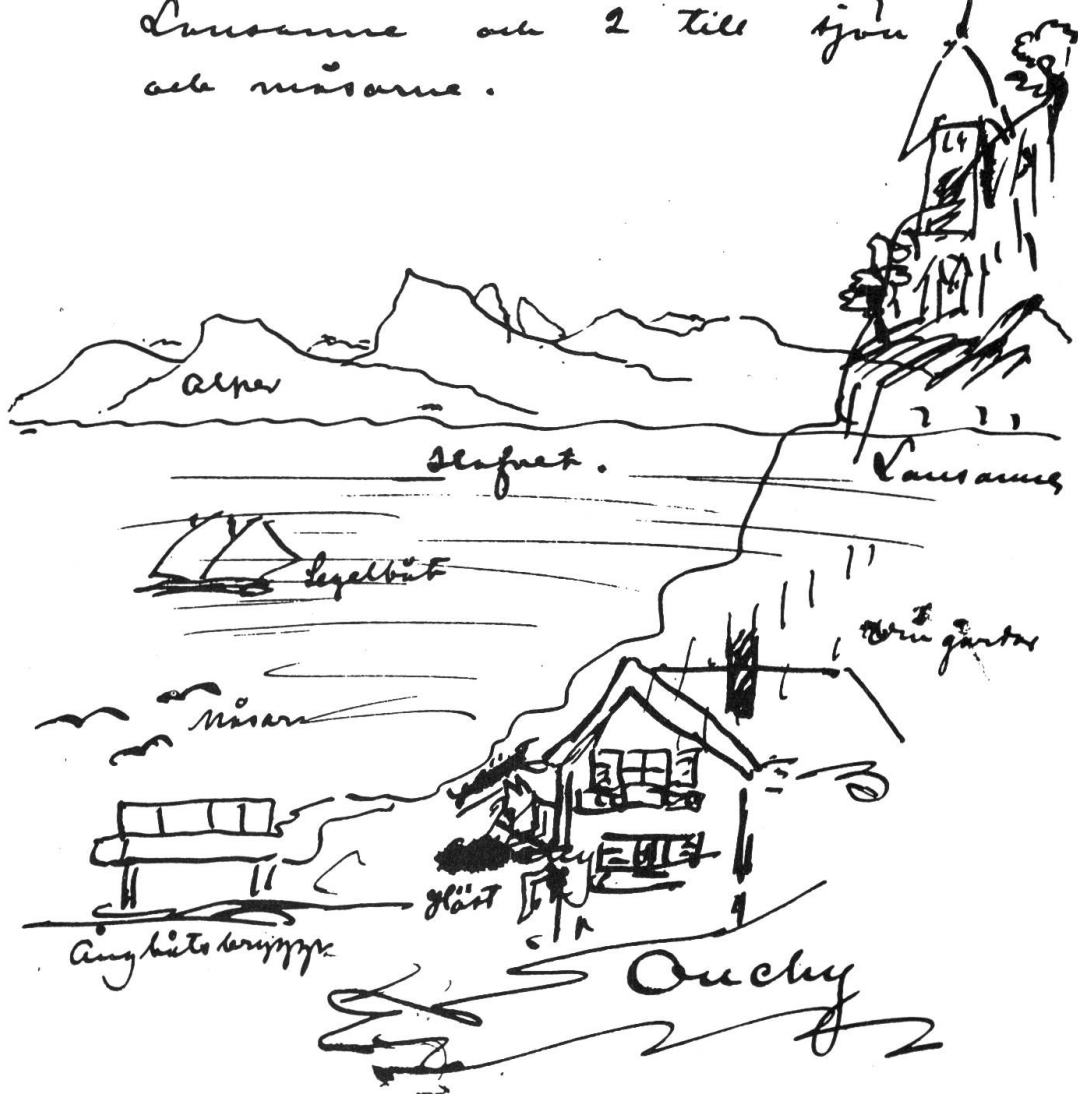 Lausanne och 2 till sjön
och måsarne.
Alper
Hafvet.
Lausanne
Segelbåt
Vingårdar
Måsarne
Häst
Ångbåtsbrygga
Ouchy